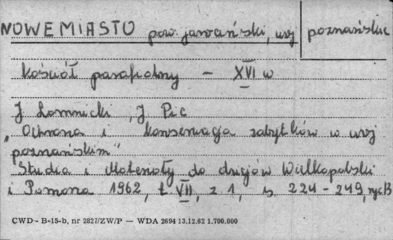 NOWE MIASTO pow. jarociński, woj poznańskie
Kościół parafialny - XVI w
J Łomnicki, J. Pic
"Ochrona i konserwacja zabytków w woj
poznańskim"
Studia i Materiały do dziejów Wielkopolski
i Pomorza 1962, t VII, z 1, s. 224-249,
CWD - B-15-b, nr 2827/ZW/P — WDA 2694 13.12.62 1.700.000